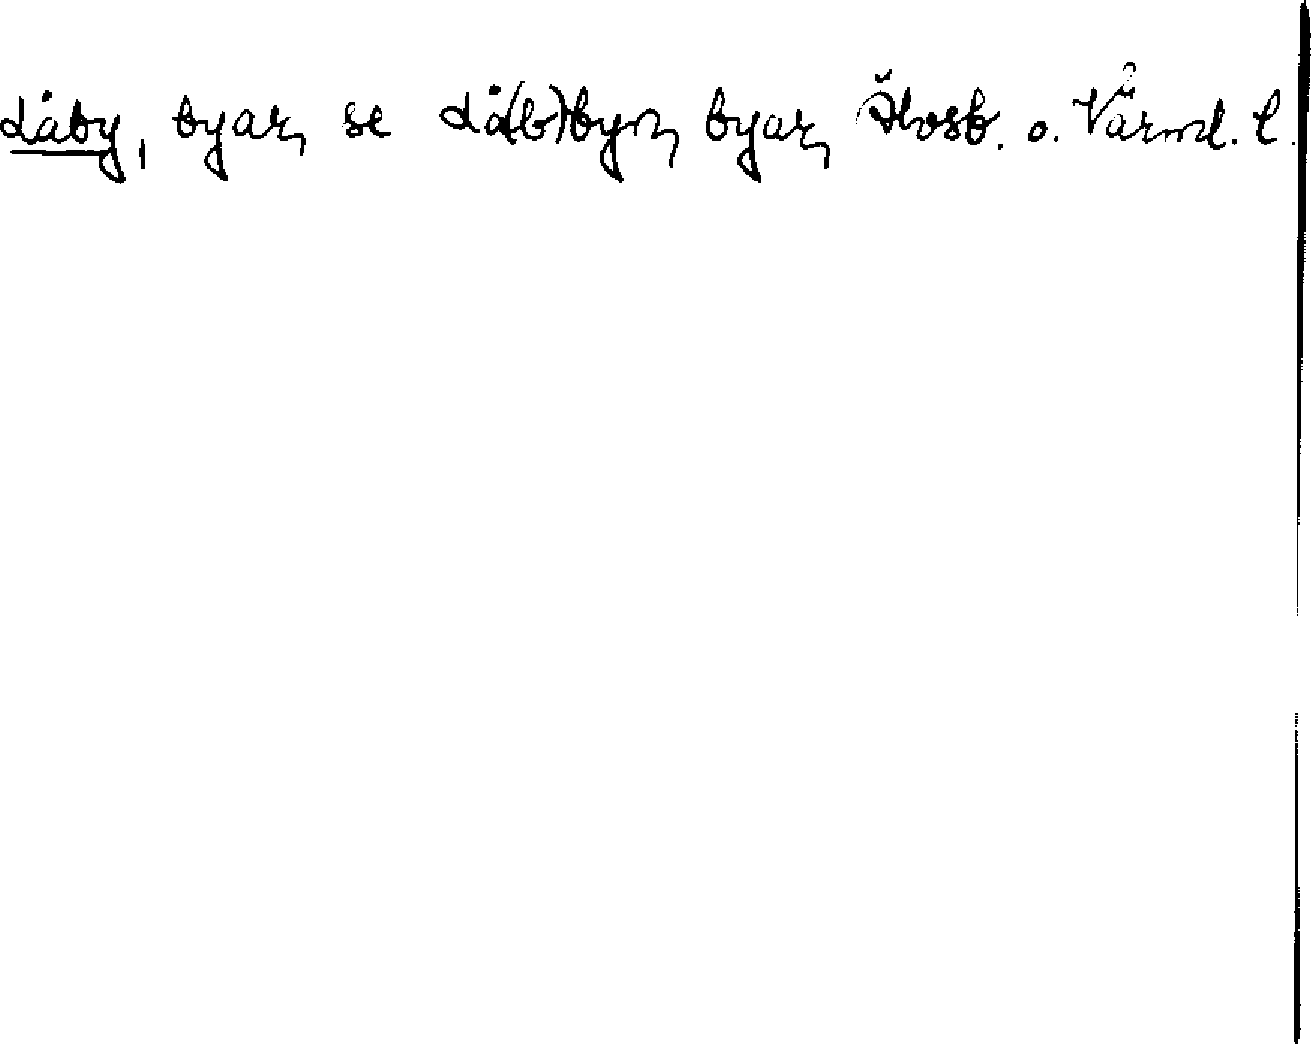 Låby, byar, se Lå(b)byn, byar, Älvsb. o. Värml. l.